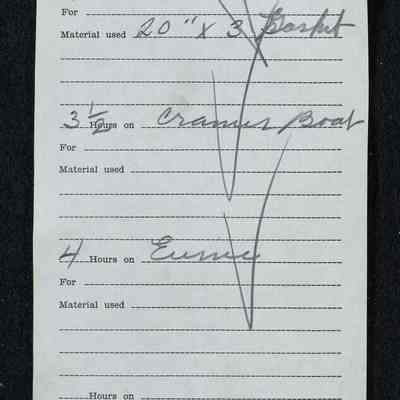 For
Material used 20" x 3 Gasket
3 1/2 Hours on Cramer Boat
For
Material used
4 Hours on
For
Material used
Hours on